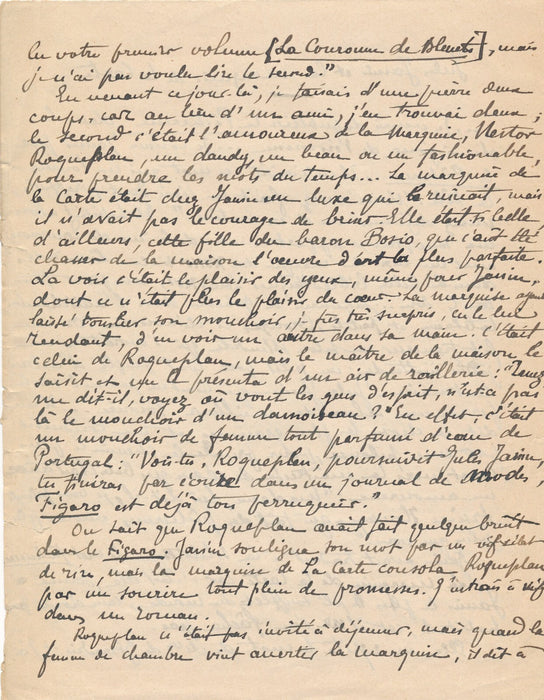 lu votre premier volume [La Couronne de Bleuets], mais
je n'ai pas voulu lire le second."
En venant ce jour-là, je faisais d'une pierre deux
coups, car au lieu d'un ami, j'en trouvai deux ;
le second c'était l'amoureux de la marquise, Nestor
Roqueplan, un dandy, un beau ou un fashionable,
pour prendre les mots du temps... La marquise de
La Carte était chez Janin un luxe qui le ruinait, mais
il n'avait pas le courage de briser. Elle était si belle
d'ailleurs, cette fille du baron Bosio, que c'eût été
chasser de la maison l'oeuvre d'art la plus parfaite.
La voir c'était le plaisir des yeux, même pour Janin,
dont ce n'était plus le plaisir du coeur. La marquise ayant
laissé tomber son mouchoir, je fus très surpris, en le lui
rendant, d'en voir un autre dans sa main. C'était
celui de Roqueplan, mais le maître de la maison le
saisit et me le présenta d'un air de raillerie : "Tenez
me dit-il, voyez où vont les gens d'esprit, n'est-ce pas
là le mouchoir d'un damoiseau ?" En effet, c'était
un mouchoir de femme tout parfumé d'eau de
Portugal : "Vois-tu, Roqueplan, poursuivit Jules Janin,
tu finiras par écrire dans un journal de modes,
Figaro est déjà ton perruquier."
On sait que Roqueplan avait fait quelque bruit
dans le Figaro. Janin souligna son mot par un vif éclat
de rire, mais la marquise de La Carte consola Roqueplan
par un sourire tout plein de promesses. J'entrais à vif
dans un roman.
Roqueplan n'était pas invité à déjeuner, mais quand la
femme de chambre vint avertir la marquise, il dit à